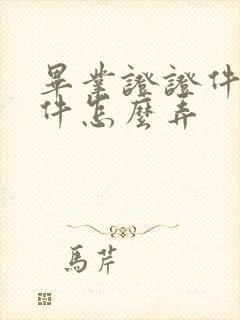 畢業證證件
件怎麼弄
馬芹